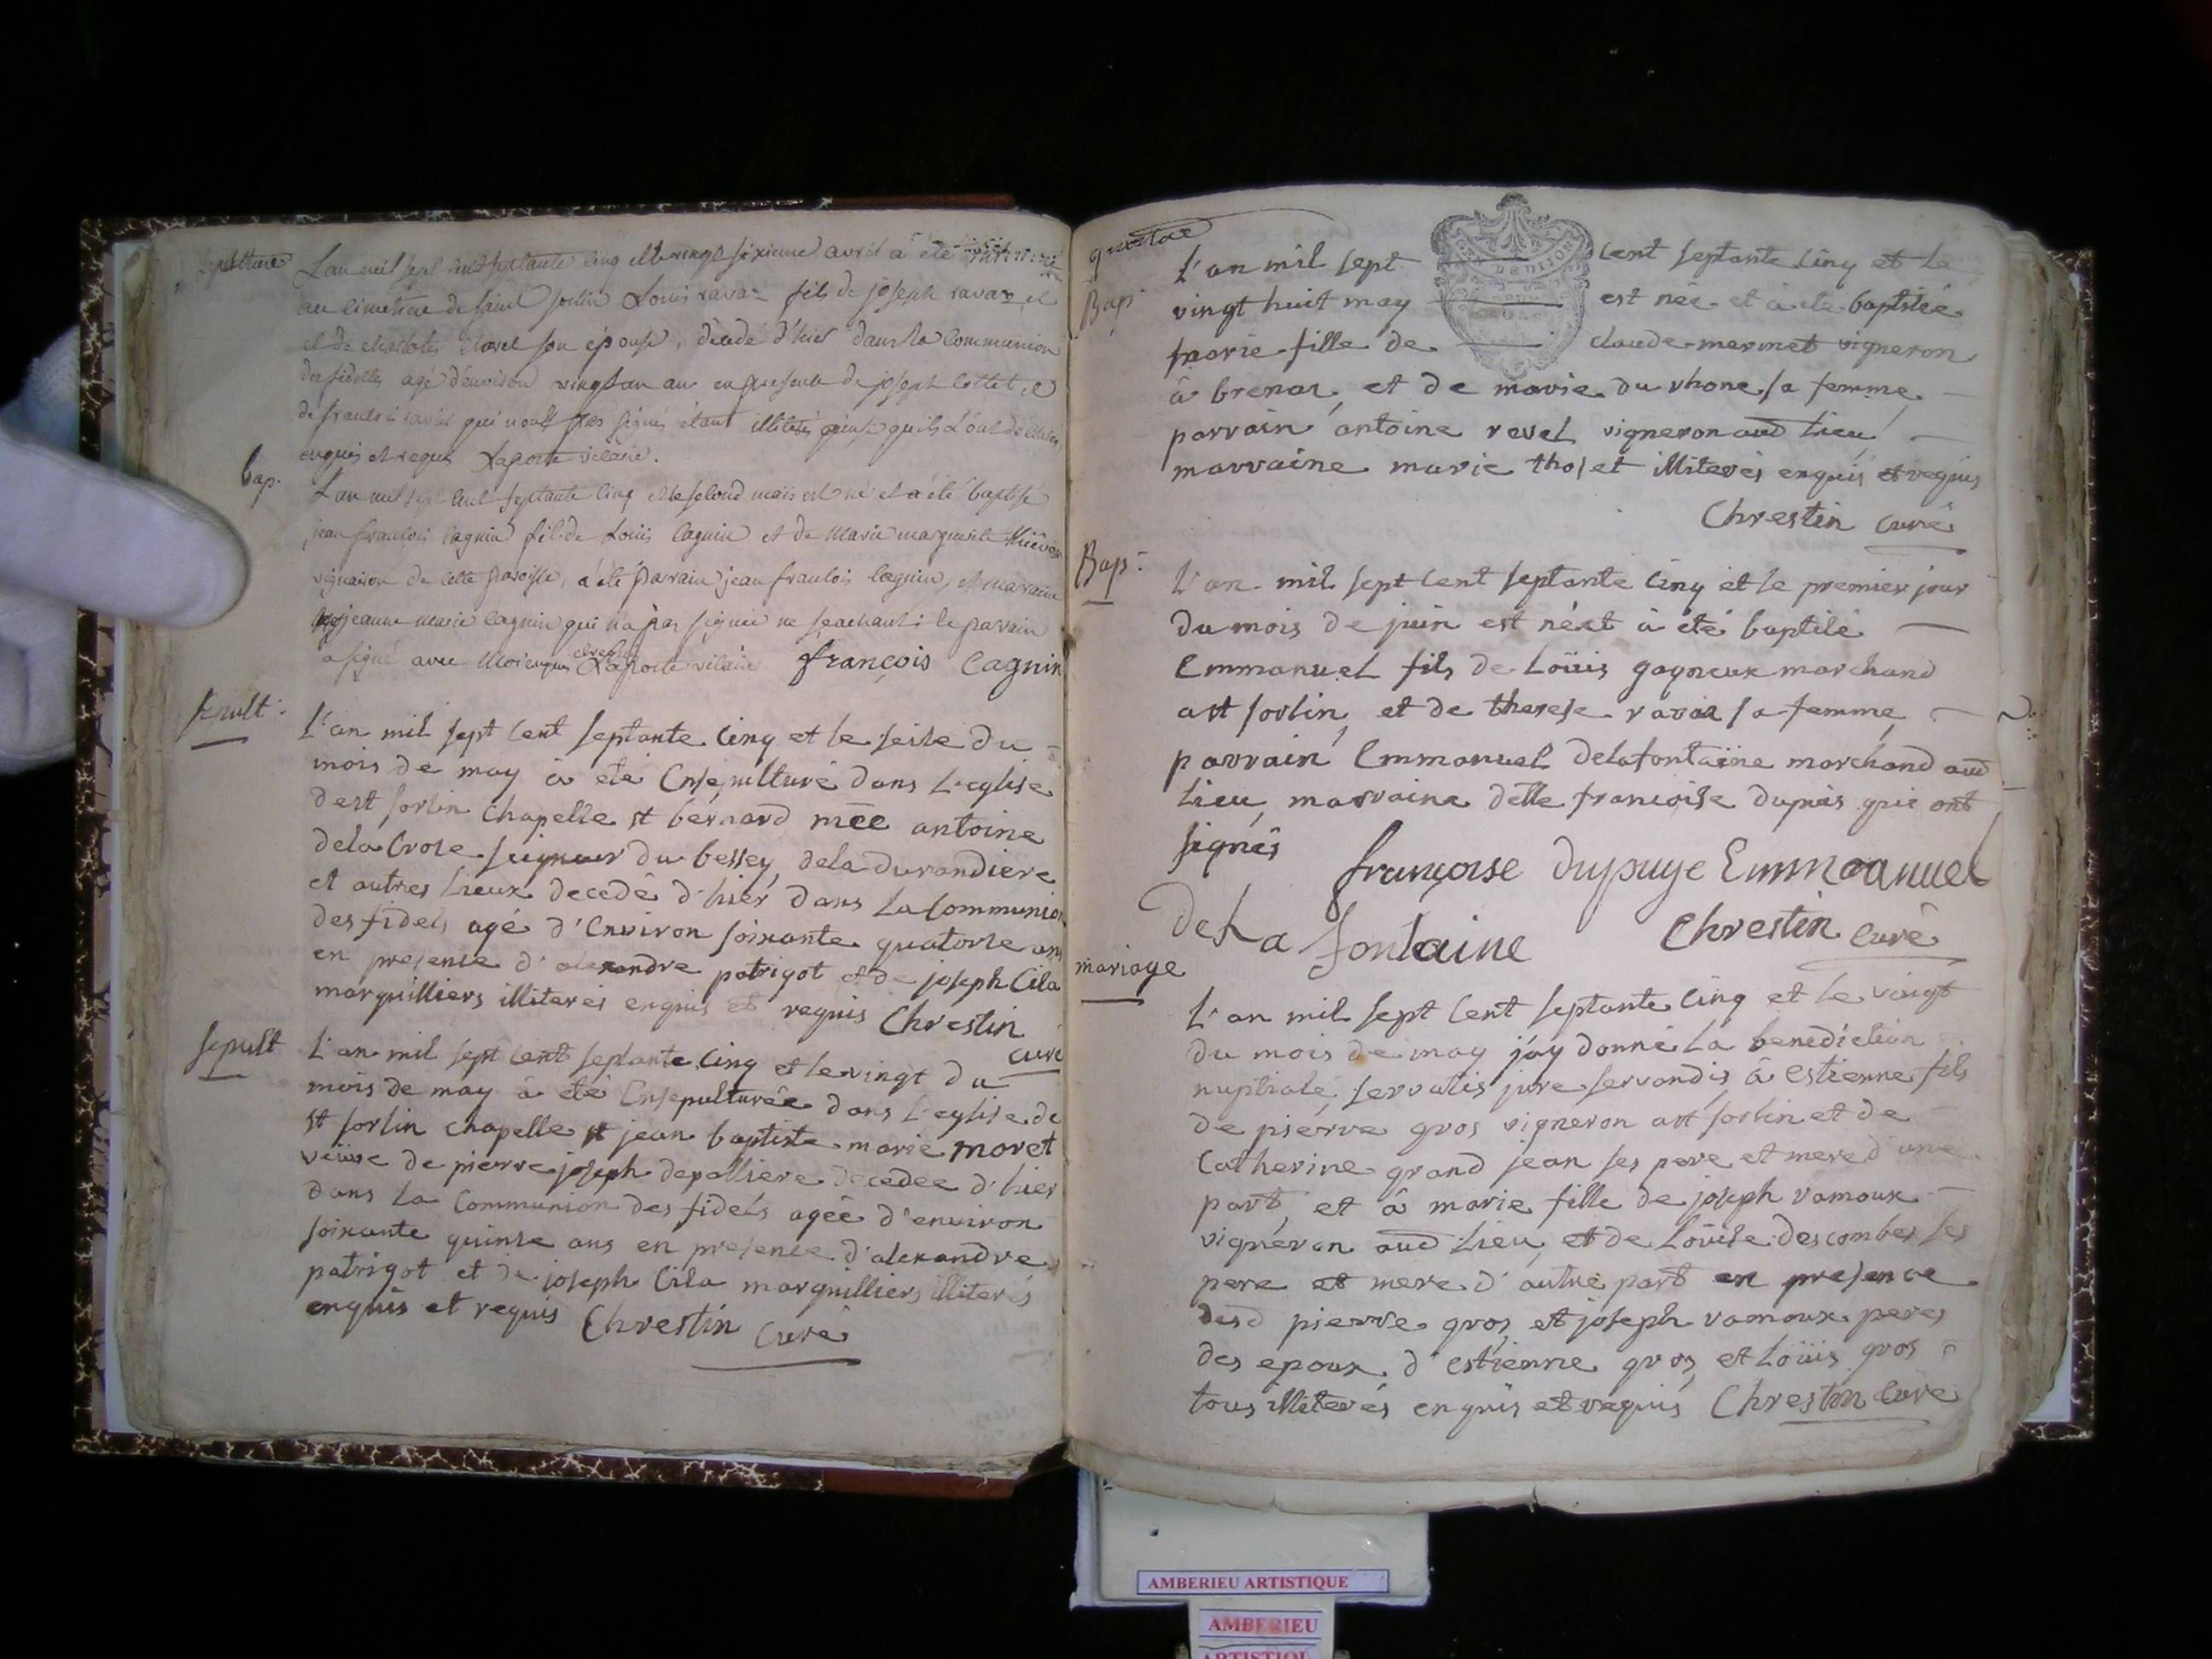 sepulture
L'an mil sept cent septante cinq et le vingt sixieme avril a été
au cimetiere de saint sorlin Louis ravaz fils de joseph ravaz et
et de son épouse, décédé d'hier dans la communion
des fidelles agé d'environ vingt un an en presence de joseph cottet et
de francois qui n'ont pas signés étant illiterés ainsi qu'ils l'ont déclarés
enquis et requis Laporte vicaire.
bap.
L'an mil sept cent septante cinq et le second mais est né et a été baptisé
jean francois cagnin fils de Louis cagnin et de Marie marguerite
vigneron de cette paroisse, a été parrain jean francois cagnin, et maraine
jeanne marie cagnin qui n'a pas signée ne sçachant: le parrain
a signé avec moi enquis et requis Laporte vicaire. françois Cagnin
sepult:
L'an mil sept cent septante cinq et le seise du
mois de may à eté Ensepulturé dans L'eglise
de st sorlin chapelle st bernard mre antoine
dela Crose seigneur du bessey, dela durandiere
et autres lieux decedé d'hier dans La Communion
des fidels agé d'Environ soixante quatorse ans
en presence d'alexandre patrigot et de joseph Cila
marguilliers illiterés enquis et requis Chrestin
curé
sepult
L'an mil sept cent septante cinq et le vingt du
mois de may à eté Ensepulturée dans L'eglise de
st sorlin chapelle st jean baptiste marie moret
veüve de pierre joseph depalliere decedée d'hier
dans La Communion des fidels agée d'environ
soixante quinse ans en presence d'alexandre
patrigot et de joseph Cila marguilliers illiterés
enquis et requis Chrestin curé
Bap:
L'an mil sept cent septante cinq et le
vingt huit may est née et à eté baptisée
marie fille de claude mermet vigneron
à brenaz, et de marie du rhone sa femme
parrain antoine revel vigneron aud Lieu
marraine marie thoset illiterés enquis et requis
Chrestin curé
Bap:
L'an mil sept cent septante cinq et le premier jour
du mois de juin est né et à été baptisé
Emmanuel fils de Loüis gagneux marchand
a st sorlin, et de therese ravaz sa femme
parrain Emmanuel delafontaine marchand aud
Lieu, marraine delle francoise dupuis qui ont
signés françoise dupuye Emmanuel
de La fontaine Chrestin curé
mariage
L'an mil sept cent septante cinq et le vingt
du mois de may j'ay donné la benediction
nuptiale, servatis jure servandis, à estienne fils
de pierre gros vigneron a st sorlin et de
Catherine grand jean ses pere et mere d'une
part, et à marie fille de joseph ramoux
vigneron aud Lieu, et de Loüise descombes ses
pere et mere d'autre part en presence
desd pierre gros, et joseph ramoux peres
des epoux d'estienne gros, et Loüis gros
tous illiterés enquis et requis Chrestin curé
AMBERIEU ARTISTIQUE
AMBERIEU
ARTISTIQUE